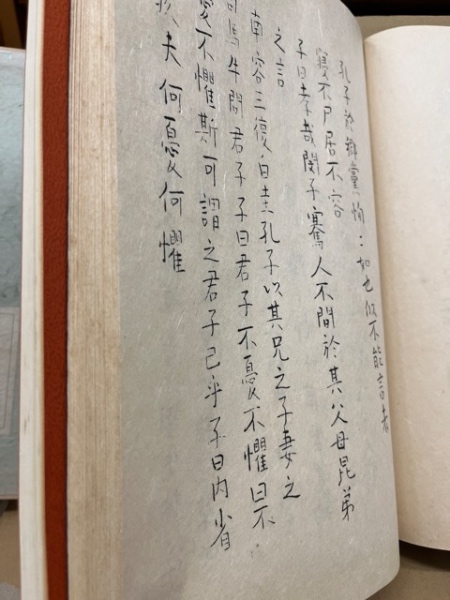 孔子於鄉黨恂〻如也似不能言者
寢不尸居不容
子曰孝哉閔子騫人不間於其父母昆弟
之言
南容三復白圭孔子以其兄之子妻之
司馬牛問君子子曰君子不憂不懼曰不
憂不懼斯可謂之君子已乎子曰內省
疚夫何憂何懼